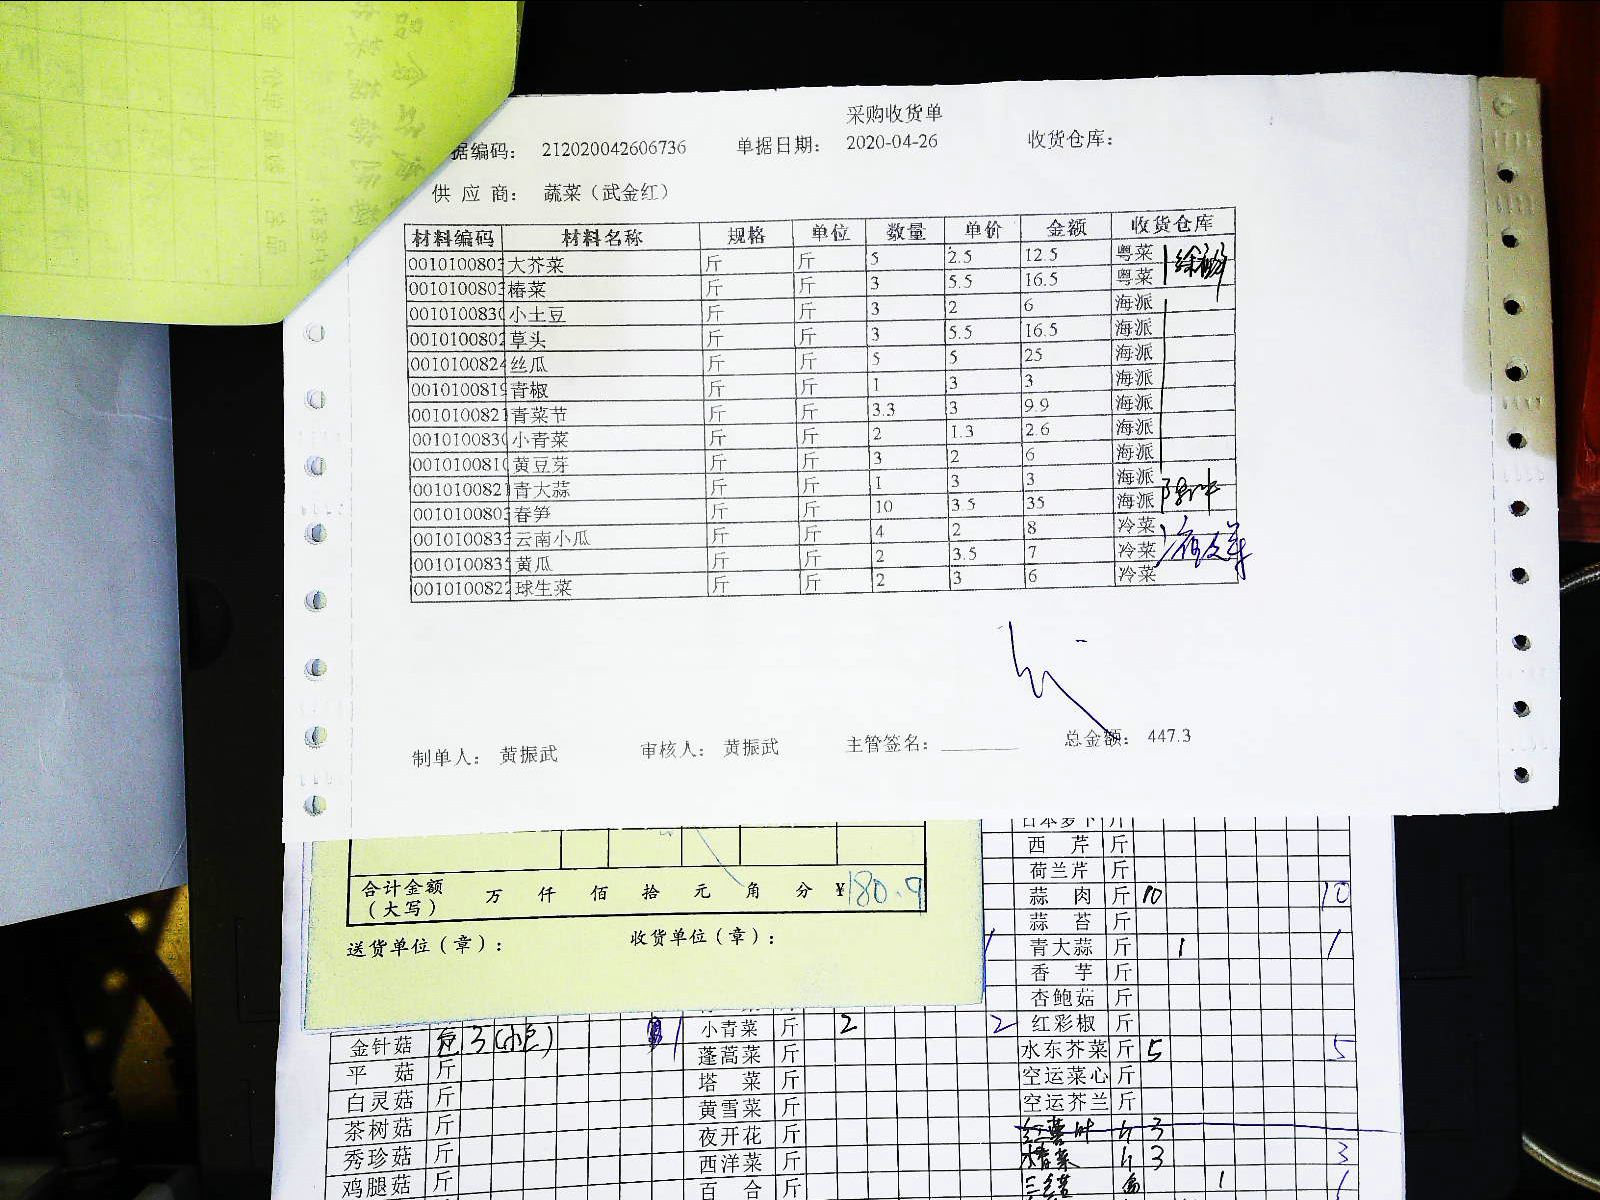 采购收货单
据编码: 212020042606736 单据日期: 2020-04-26 收货仓库:
供 应 商: 蔬菜（武金红）
材料编码 材料名称 规格 单位 数量 单价 金额 收货仓库
0010100803 大芥菜 斤 斤 5 2.5 12.5 粤菜
0010100803 椿菜 斤 斤 3 5.5 16.5 粤菜
001010083 小土豆 斤 斤 3 2 6 海派
0010100802 草头 斤 斤 3 5.5 16.5 海派
0010100824 丝瓜 斤 斤 5 5 25 海派
0010100819 青椒 斤 斤 1 3 3 海派
0010100821 青菜节 斤 斤 3.3 3 9.9 海派
001010083 小青菜 斤 斤 2 1.3 2.6 海派
001010081 黄豆芽 斤 斤 3 2 6 海派
0010100821 青大蒜 斤 斤 1 3 3 海派
0010100803 春笋 斤 斤 10 3.5 35 海派
0010100833 云南小瓜 斤 斤 4 2 8 冷菜
0010100835 黄瓜 斤 斤 2 3.5 7 冷菜
0010100822 球生菜 斤 斤 2 3 6 冷菜
制单人: 黄振武 审核人: 黄振武 主管签名: 总金额: 447.3
合计金额（大写） 万 仟 佰 拾 元 角 分 ¥180.9
送货单位（章）: 收货单位（章）:
日本萝卜 斤
西 芹 斤
荷兰芹 斤
蒜 肉 斤 10 10
蒜 苔 斤
青大蒜 斤 1 1
香 芋 斤
杏鲍菇 斤
金针菇 3 1 小青菜 斤 2 2 红彩椒 斤
平 菇 斤 蓬蒿菜 斤 水东芥菜 斤 5 5
白灵菇 斤 塔 菜 斤 空运菜心 斤
茶树菇 斤 黄雪菜 斤 空运芥兰 斤
秀珍菇 斤 夜开花 斤 红薯叶 斤 3
鸡腿菇 斤 西洋菜 斤 椿菜 斤 3 3
百 合 斤 1 1